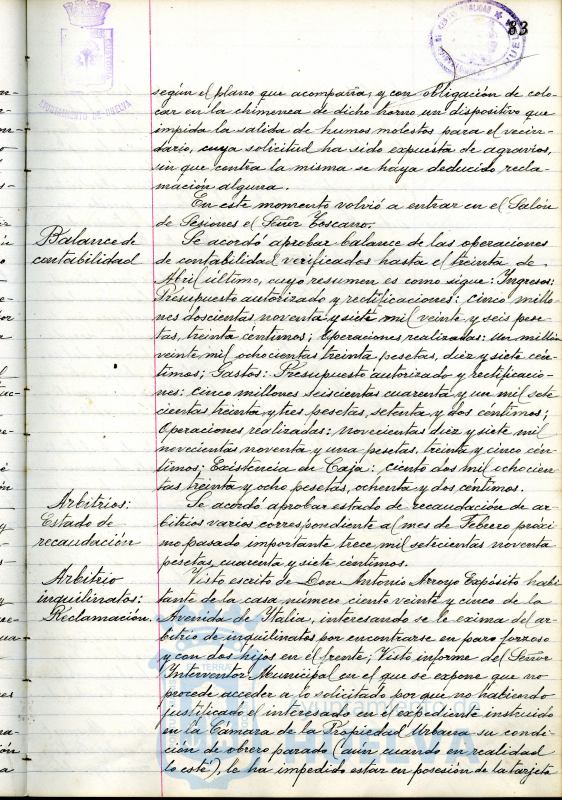 83
AYUNTAMIENTO DE HUELVA
según el plano que acompaña, y con obligación de colo-
car en la chimenea de dicho horno un dispositivo que
impida la salida de humos molestos para el vecin-
dario, cuya solicitud ha sido expuesta de agravios,
sin que contra la misma se haya deducido recla-
mación alguna.
En este momento volvió a entrar en el Salón
de Sesiones el Señor Toscano.
Balance de
contabilidad
Se acordó aprobar balance de las operaciones
de contabilidad verificados hasta el treinta de
Abril último, cuyo resumen es como sigue: Ingresos:
Presupuesto autorizado y rectificaciones: cinco millo-
nes doscientas noventa y siete mil veinte y seis pese-
tas, treinta céntimos; Operaciones realizadas: un millón
veinte mil ochocientas treinta pesetas, diez y siete cén-
timos; Gastos: Presupuesto autorizado y rectificacio-
nes: cinco millones seiscientas cuarenta y un mil sete
cientas treinta y tres pesetas, setenta y dos céntimos;
Operaciones realizadas: novecientas diez y siete mil
novecientas noventa y una pesetas, treinta y cinco cén-
timos; Existencia en Caja: ciento dos mil ochocien-
tas treinta y ocho pesetas, ochenta y dos céntimos.
Arbitrios:
Estado de
recaudación
Se acordó aprobar estado de recaudación de ar-
bitrios varios correspondiente al mes de Febrero próxi
mo pasado importante trece mil setecientas noventa
pesetas, cuarenta y siete céntimos.
Arbitrio
inquilinatos:
Reclamación.
Visto escrito de Don Antonio Arroyo Expósito habi
tante de la casa número ciento veinte y cinco de la
Avenida de Italia, interesando se le exima del ar-
bitrio de inquilinatos por encontrarse en paro forzoso
y con dos hijos en el frente; Visto informe del Señor
Interventor Municipal en el que se expone que no
procede acceder a lo solicitado por que no habiendo
justificado el interesado en el expediente instruido
en la Cámara de la Propiedad Urbana su condi-
ción de obrero parado (aun cuando en realidad
lo esté), le ha impedido estar en posesión de la tarjeta
Ayuntamiento de
HUELVA